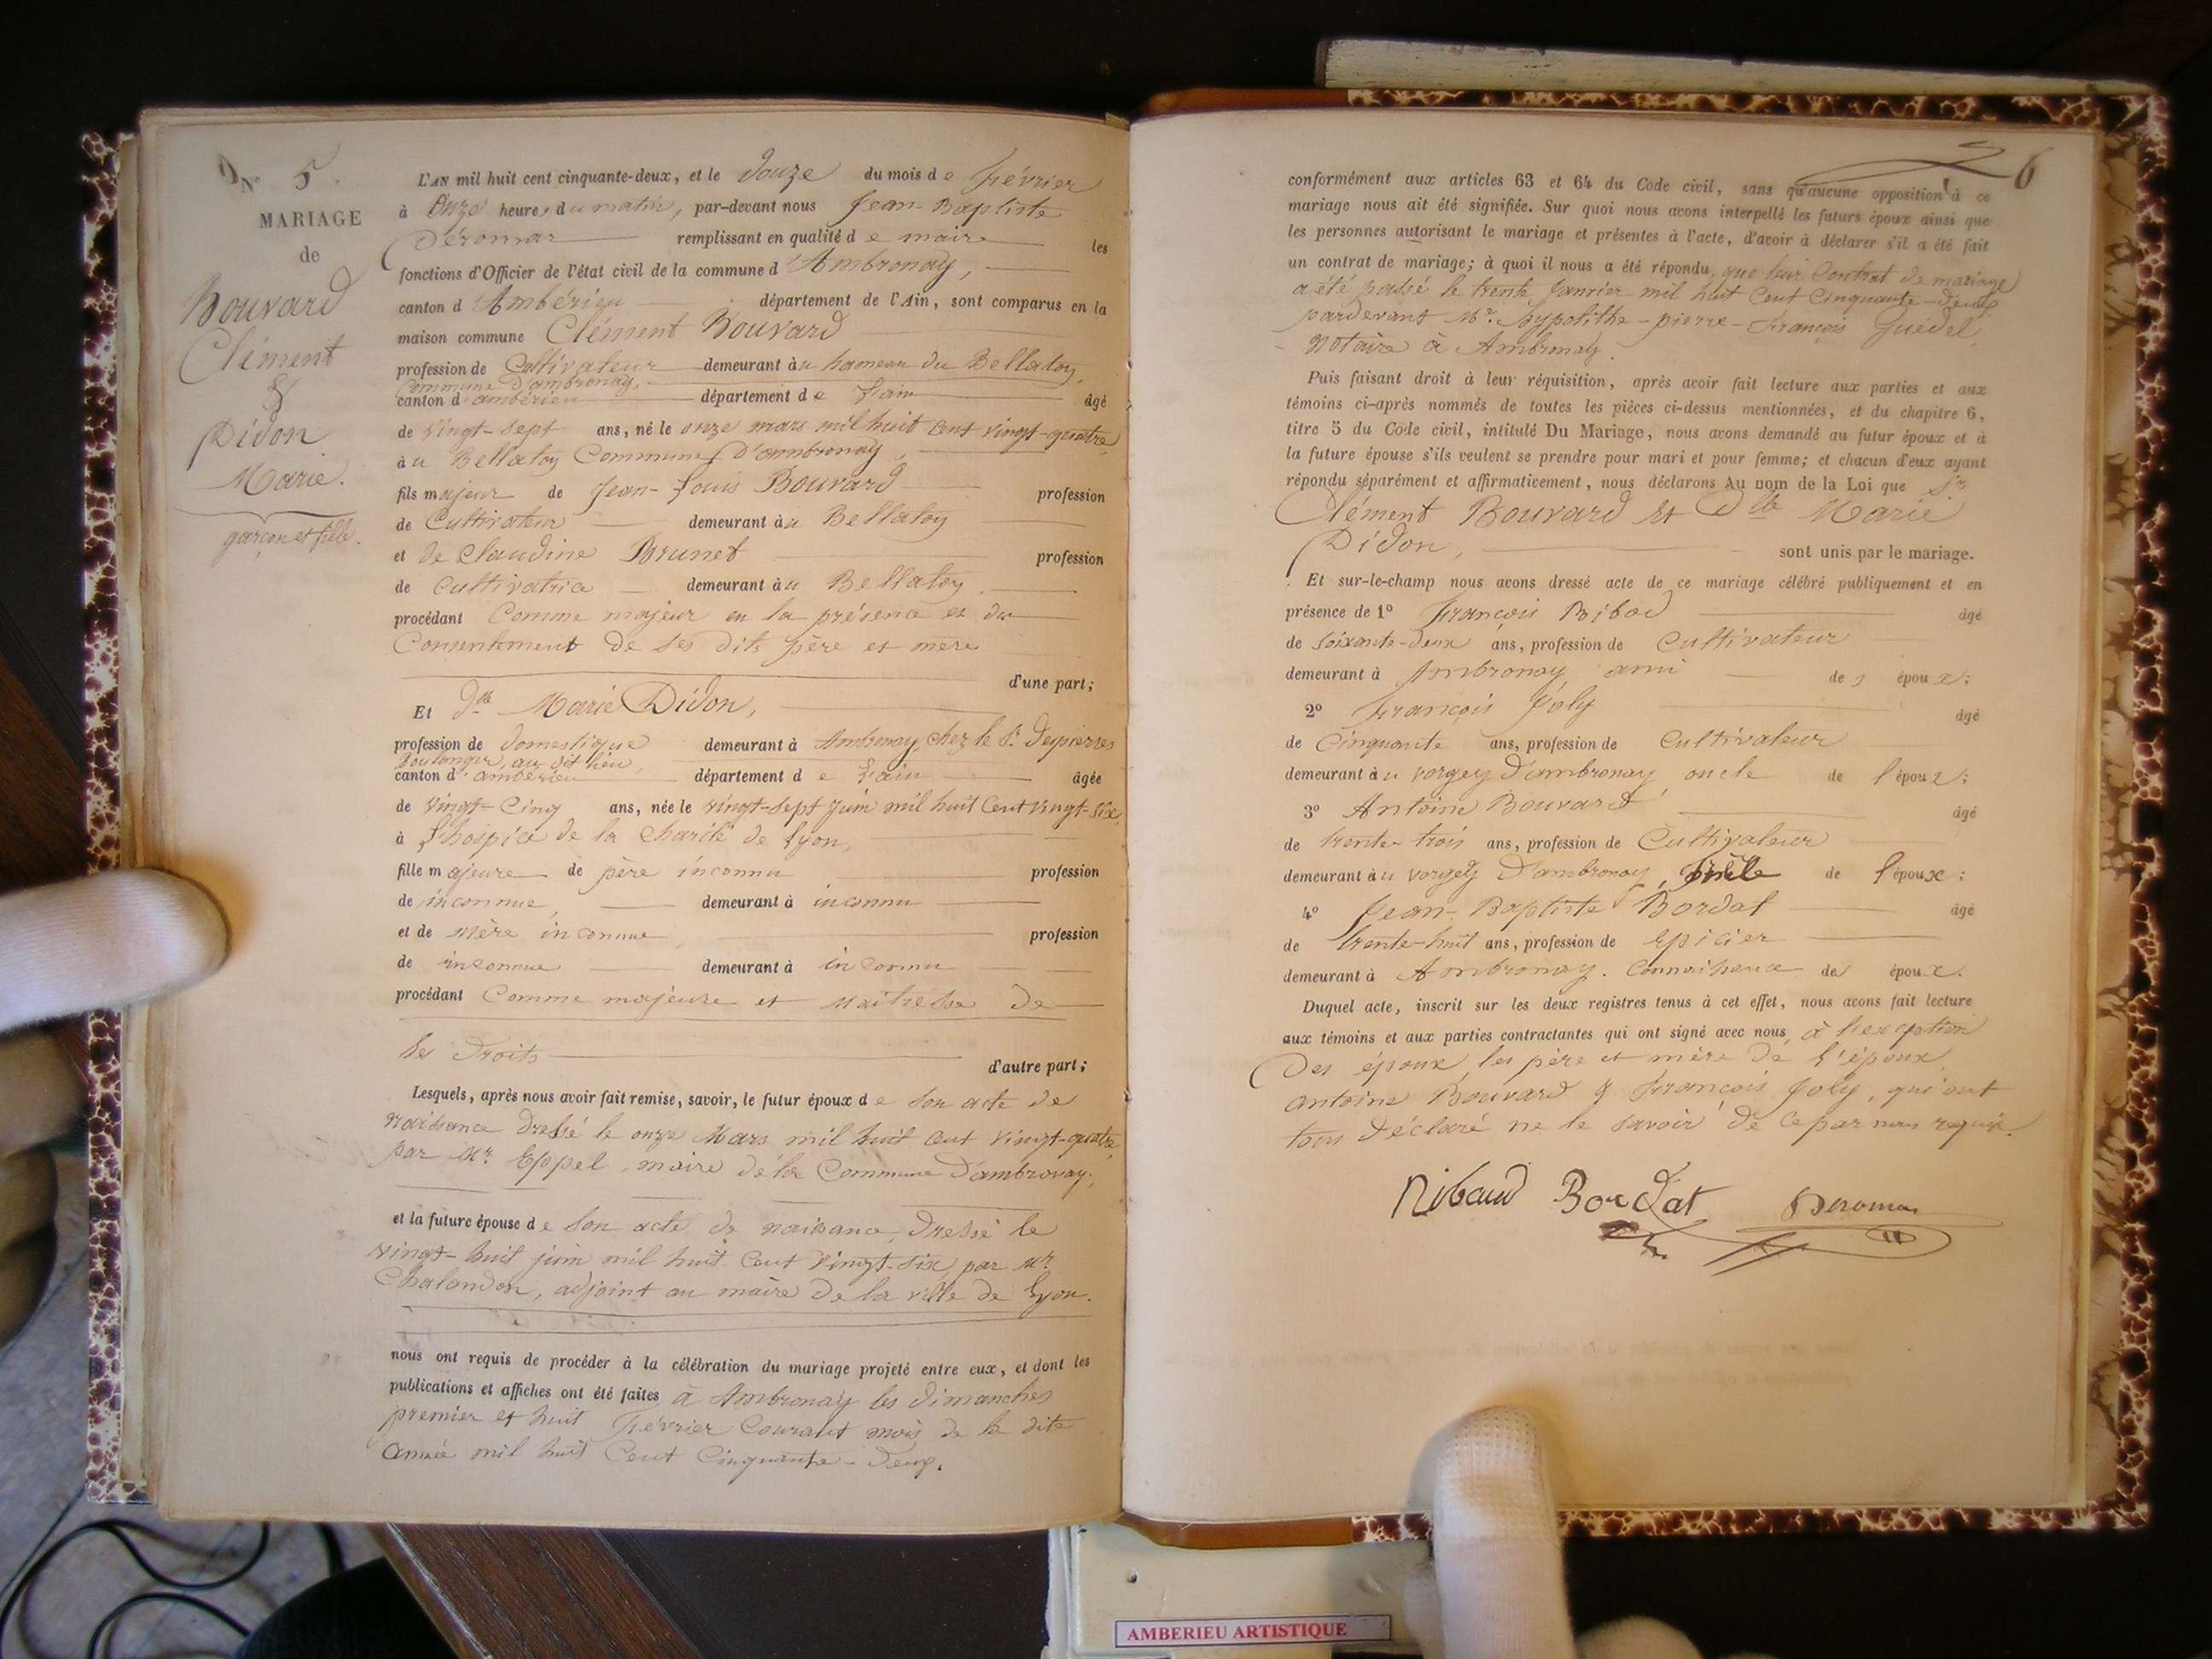 N° 5.
MARIAGE
de
Bouvard
Clément
&
Didon
Marie.
garçon et fille.
L'AN mil huit cent cinquante-deux, et le Douze du mois de Février
à Onze heures du matin, par-devant nous Jean-Baptiste
Déromas remplissant en qualité de maire les
fonctions d'Officier de l'état civil de la commune d'Ambronay,
canton d'Ambérieu département de l'Ain, sont comparus en la
maison commune Clément Bouvard
profession de Cultivateur demeurant au hameau du Bellaton,
Commune d'ambronay,
canton d'ambérieu département de l'ain âgé
de vingt-sept ans, né le onze mars mil huit cent vingt-quatre,
au Bellaton Commune d'ambronay,
fils majeur de Jean-Louis Bouvard profession
de Cultivateur demeurant au Bellaton
et de Claudine Brunet profession
de Cultivatrice demeurant au Bellaton
procédant Comme majeur en la présence et du
Consentement de ses dits père et mère
d'une part;
Et Dlle Marie Didon,
profession de domestique demeurant à Ambronay chez le Sr. Depierres
boulanger, au dit lieu,
canton d'ambérieu département de l'ain âgée
de vingt-Cinq ans, née le vingt-sept juin mil huit Cent vingt-six,
à l'hospice de la Charité de Lyon,
fille majeure de père inconnu profession
de inconnue, demeurant à inconnu
et de mère inconnue profession
de inconnue demeurant à inconnu
procédant Comme majeure et Maitresse de
ses Droits
d'autre part;
Lesquels, après nous avoir fait remise, savoir, le futur époux de son acte de
naissance Dressé le onze Mars mil huit cent vingt-quatre,
par Mr. Eppel, maire de la Commune D'ambronay;
et la future épouse de son acte de naissance, Dressé le
vingt-huit juin mil huit Cent vingt-six, par Mr
Chalandon, adjoint au maire de la ville de Lyon.
nous ont requis de procéder à la célébration du mariage projeté entre eux, et dont les
publications et affiches ont été faites à Ambronay les dimanches
premier et huit Février Courant mois de la dite
année mil huit Cent Cinquante-Deux.
6
conformément aux articles 63 et 64 du Code civil, sans qu'aucune opposition à ce
mariage nous ait été signifiée. Sur quoi nous avons interpellé les futurs époux ainsi que
les personnes autorisant le mariage et présentes à l'acte, d'avoir à déclarer s'il a été fait
un contrat de mariage; à quoi il nous a été répondu que leur Contrat de mariage
a été passé le trente Janvier mil huit Cent Cinquante-deux
pardevant Me. hypolithe-pierre-françois Guédel,
Notaire à Ambronay.
Puis faisant droit à leur réquisition, après avoir fait lecture aux parties et aux
témoins ci-après nommés de toutes les pièces ci-dessus mentionnées, et du chapitre 6,
titre 5 du Code civil, intitulé Du Mariage, nous avons demandé au futur époux et à
la future épouse s'ils veulent se prendre pour mari et pour femme; et chacun d'eux ayant
répondu séparément et affirmativement, nous déclarons Au nom de la Loi que Sr
Clément Bouvard et Dlle Marie
Didon, sont unis par le mariage.
Et sur-le-champ nous avons dressé acte de ce mariage célébré publiquement et en
présence de 1° François Ribod âgé
de soixante-deux ans, profession de Cultivateur
demeurant à Ambronay ami des époux;
2° François Joly âgé
de Cinquante ans, profession de Cultivateur
demeurant au vorgey D'ambronay oncle de l'époux;
3° Antoine Bouvard âgé
de trente-trois ans, profession de Cultivateur
demeurant au vorgey D'ambronay, frère de l'époux;
4° Jean-Baptiste Bordat âgé
de trente-huit ans, profession de Epicier
demeurant à Ambronay. Connaissance des époux.
Duquel acte, inscrit sur les deux registres tenus à cet effet, nous avons fait lecture
aux témoins et aux parties contractantes qui ont signé avec nous, à l'exception
Des époux, les père et mère de l'époux,
antoine Bouvard & François Joly, qui ont
tous déclaré ne le savoir de ce par nous requis.
Ribaud Bordat Deromas
AMBERIEU ARTISTIQUE